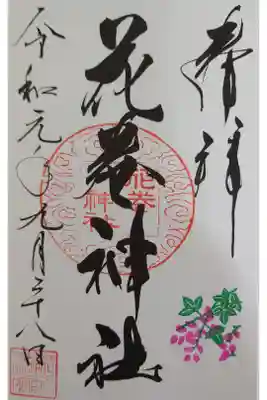 奉拝
花巻神社
花巻
神社
令和元年九月二十八日